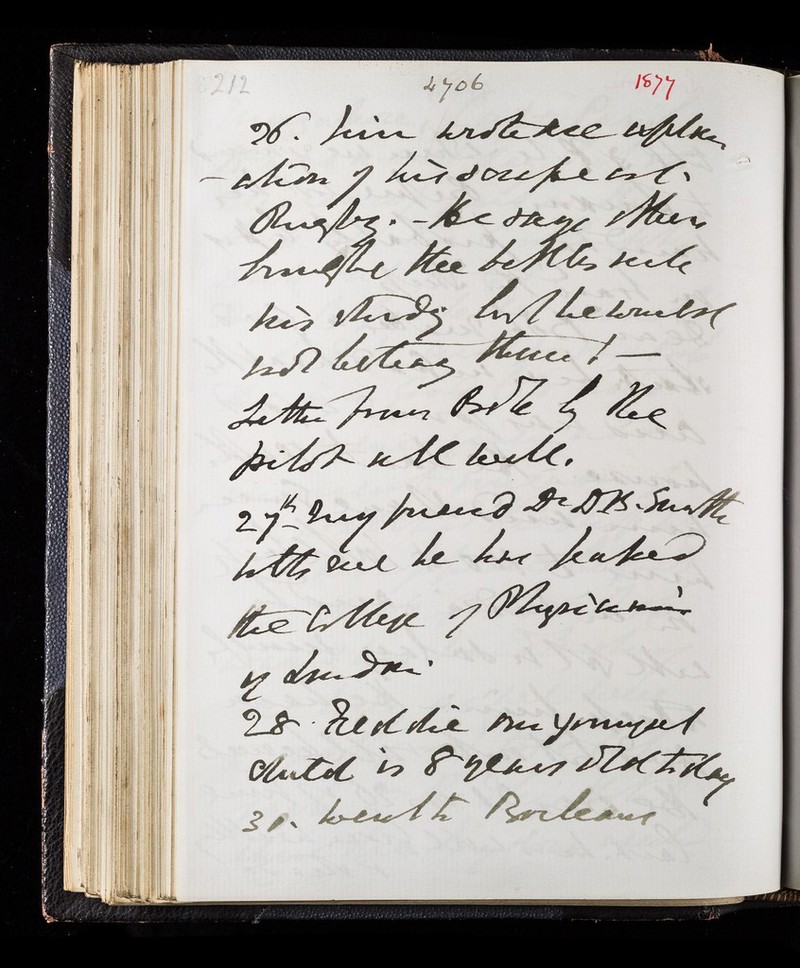 212 4706 1877
26. him wrote me explan
-ation of his scrape at
Rugby. - He says others
brought the bottles into
his study but he would
not betray them! -
Letter from by the
pilot all well.
27th My friend Dr D B. Smith
tells me he has passed
the College of Physicians
of London
28. Freddie our youngest
child is 8 years old today
30. went to